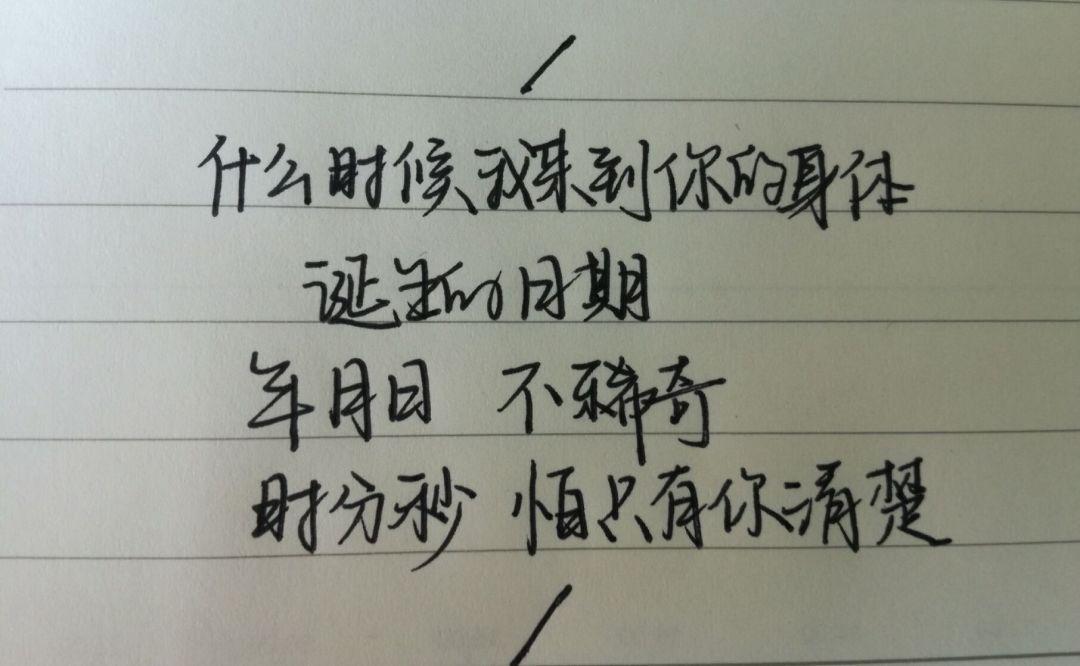 什么时候我来到你的身体
诞生的日期
年月日 不稀奇
时分秒 怕只有你清楚